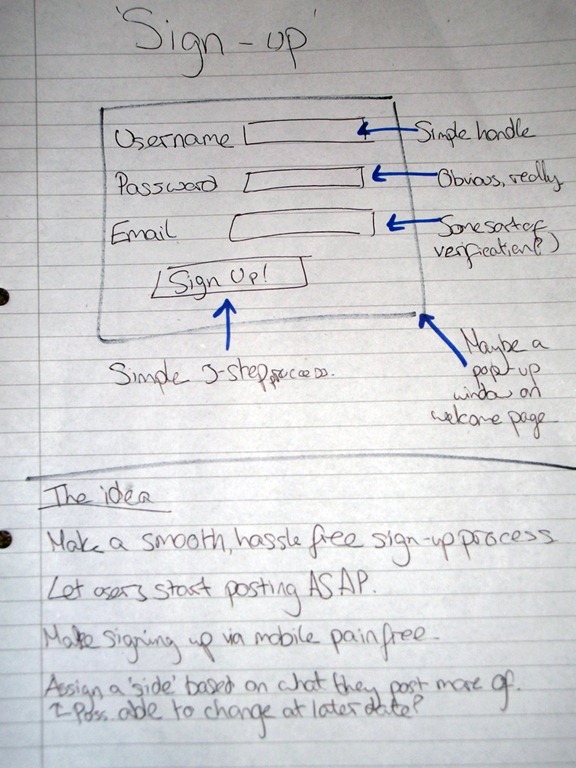 'Sign-up'
Username
Simple handle
Password
Obvious, really
Email
Some sort of
verification(?)
Sign Up!
Simple 3-step process.
Maybe a
pop-up
window on
welcome page
The idea
Make a smooth, hassle free sign-up process
Let users start posting ASAP.
Make signing up via mobile painfree.
Assign a 'side' based on what they post more of.
Poss. able to change at later date?